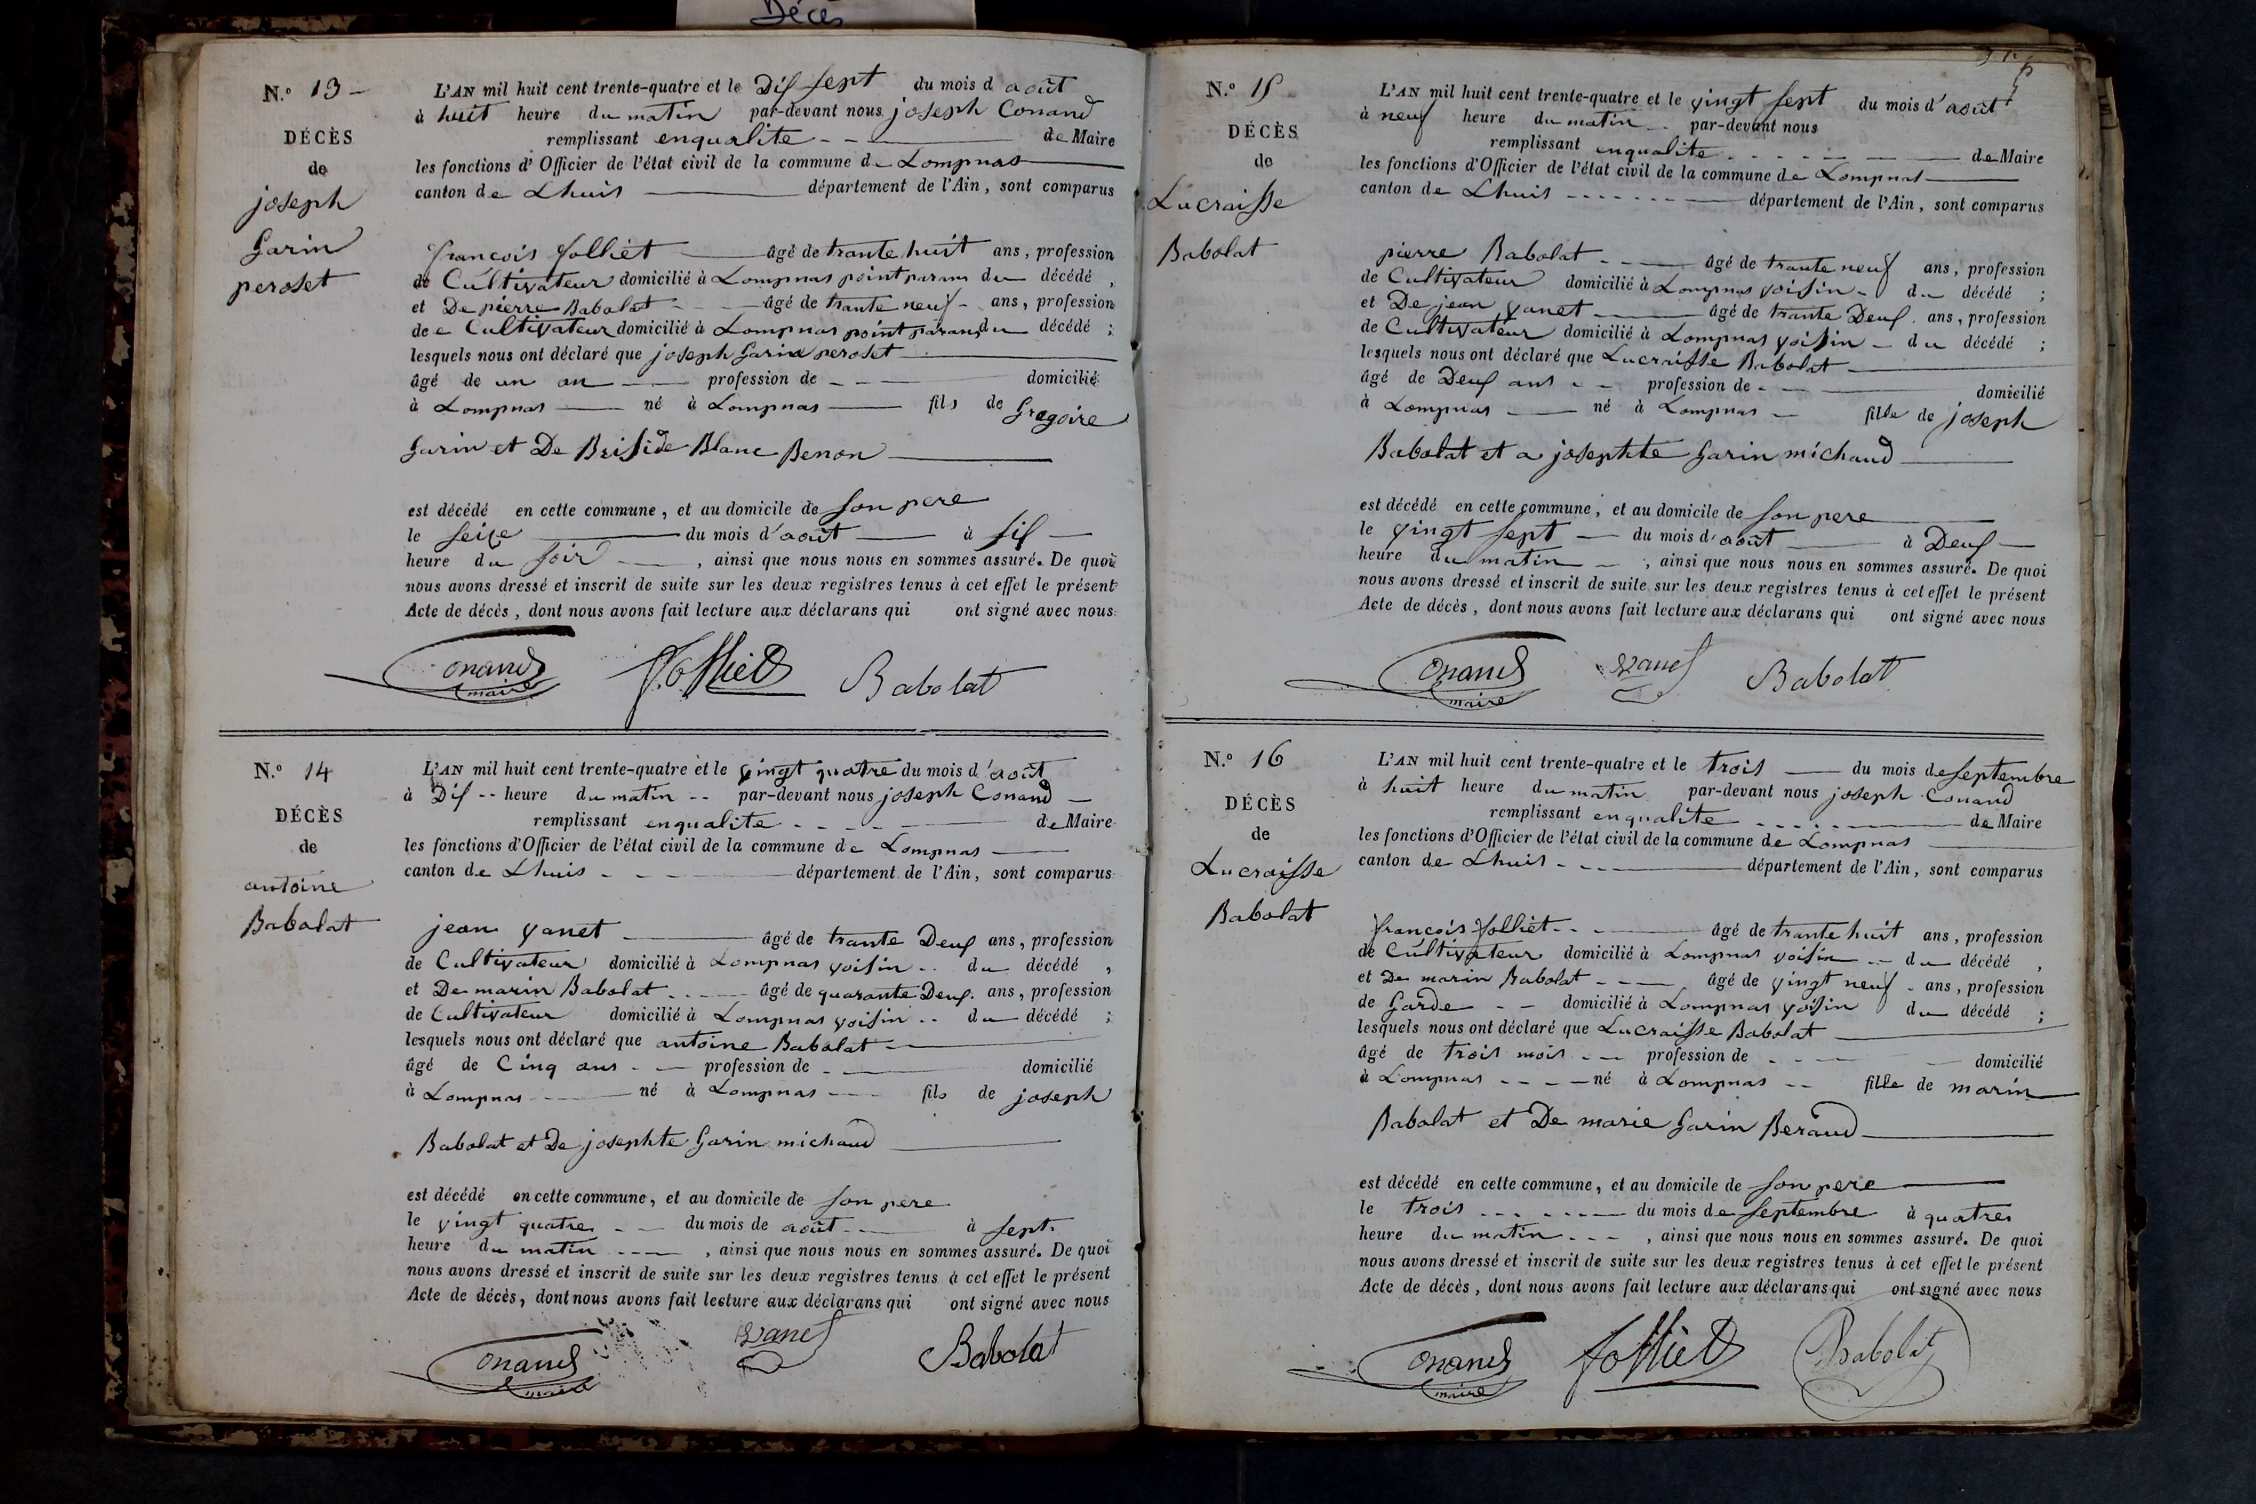 Décès
N.º 13 -
DÉCÈS
de
joseph
Garin
peroset
L'AN mil huit cent trente-quatre et le Dis sept du mois d août
à huit heure du matin par-devant nous joseph Conand
remplissant enqualite - - de Maire
les fonctions d'Officier de l'état civil de la commune de Lompnas
canton de Lhuis département de l'Ain, sont comparus
françois folliet âgé de trante huit ans, profession
de Cultivateur domicilié à Lompnas point paran du décédé,
et De pierre Babolat - - âgé de trante neuf - ans, profession
de Cultivateur domicilié à Lompnas point paran du décédé ;
lesquels nous ont déclaré que joseph Garin peroset
âgé de un an profession de - - domicilié
à Lompnas né à Lompnas fils de Gregoire
Garin et De Briside Blanc Benon
est décédé en cette commune, et au domicile de son pere
le seize du mois d'août à sis
heure du soir , ainsi que nous nous en sommes assuré. De quoi
nous avons dressé et inscrit de suite sur les deux registres tenus à cet effet le présent
Acte de décès, dont nous avons fait lecture aux déclarans qui ont signé avec nous
Conand maire folliet Babolat
N.º 14
DÉCÈS
de
antoine
Babolat
L'AN mil huit cent trente-quatre et le vingt quatre du mois d'août
à Dis -- heure du matin -- par-devant nous joseph Conand
remplissant enqualite - - - - de Maire
les fonctions d'Officier de l'état civil de la commune de Lompnas
canton de Lhuis - - - département de l'Ain, sont comparus
jean vanet âgé de trante Deus ans, profession
de Cultivateur domicilié à Lompnas voisin - - du décédé,
et De marin Babolat - - - âgé de quarante Deus. ans, profession
de Cultivateur domicilié à Lompnas voisin - - du décédé ;
lesquels nous ont déclaré que antoine Babolat
âgé de Cinq ans - profession de - domicilié
à Lompnas né à Lompnas fils de joseph
Babolat et De josephte Garin michaud
est décédé en cette commune, et au domicile de son pere
le vingt quatre - - du mois de août à sept
heure du matin - - - , ainsi que nous nous en sommes assuré. De quoi
nous avons dressé et inscrit de suite sur les deux registres tenus à cet effet le présent
Acte de décès, dont nous avons fait lecture aux déclarans qui ont signé avec nous
Conand maire vanet Babolat
N.º 15
DÉCÈS
de
Lucraisse
Babolat
L'AN mil huit cent trente-quatre et le vingt sept du mois d'août
à neuf heure du matin - - par-devant nous
remplissant enqualite - - - - de Maire
les fonctions d'Officier de l'état civil de la commune de Lompnas
canton de Lhuis - - - - département de l'Ain, sont comparus
pierre Babolat - - âgé de trante neuf ans, profession
de Cultivateur domicilié à Lompnas voisin - du décédé ;
et De jean vanet âgé de trante Deus. ans, profession
de Cultivateur domicilié à Lompnas voisin - du décédé ;
lesquels nous ont déclaré que Lucraisse Babolat
âgé de Deus ans - - profession de - - domicilié
à Lompnas né à Lompnas - fille de joseph
Babolat et a josephte Garin michaud
est décédé en cette commune, et au domicile de son pere
le vingt sept du mois d'août à Deus
heure du matin - , ainsi que nous nous en sommes assuré. De quoi
nous avons dressé et inscrit de suite sur les deux registres tenus à cet effet le présent
Acte de décès, dont nous avons fait lecture aux déclarans qui ont signé avec nous
Conand maire vanet Babolat
N.º 16
DÉCÈS
de
Lucraisse
Babolat
L'AN mil huit cent trente-quatre et le trois du mois de septembre
à huit heure du matin par-devant nous joseph Conand
remplissant enqualite - - - - de Maire
les fonctions d'Officier de l'état civil de la commune de Lompnas
canton de Lhuis - - - département de l'Ain, sont comparus
françois folliet - - âgé de trante huit ans, profession
de Cultivateur domicilié à Lompnas voisin - - du décédé,
et De marin Babolat - - - âgé de vingt neuf - ans, profession
de Garde - - domicilié à Lompnas voisin du décédé ;
lesquels nous ont déclaré que Lucraisse Babolat
âgé de trois mois - - profession de - - - domicilié
à Lompnas - - - né à Lompnas - - fille de marin
Babolat et De marie Garin Beraud
est décédé en cette commune, et au domicile de son pere
le trois - - - - du mois de septembre à quatres
heure du matin - - - , ainsi que nous nous en sommes assuré. De quoi
nous avons dressé et inscrit de suite sur les deux registres tenus à cet effet le présent
Acte de décès, dont nous avons fait lecture aux déclarans qui ont signé avec nous
Conand maire folliet Babolat